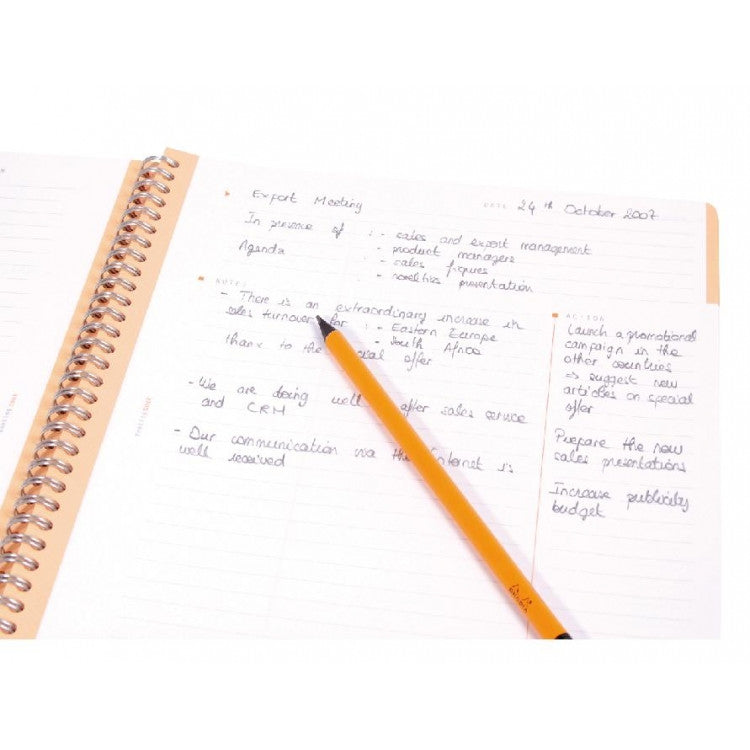 Export Meeting
DATE 24th October 2007
In presence of : - sales and export management
- product managers
Agenda : - sales figures
- novelties presentation
NOTES
- There is an extraordinary increase in
sales turnover for : - Eastern Europe
- South Africa
thanx to the offer
- We are doing well after sales service
and CRM
- Our communication via the Internet is
well received
ACTION
Launch a promotional
campaign in the
other countries
⇒ suggest new
articles on special
offer
Prepare the new
sales presentations
Increase publicity
budget